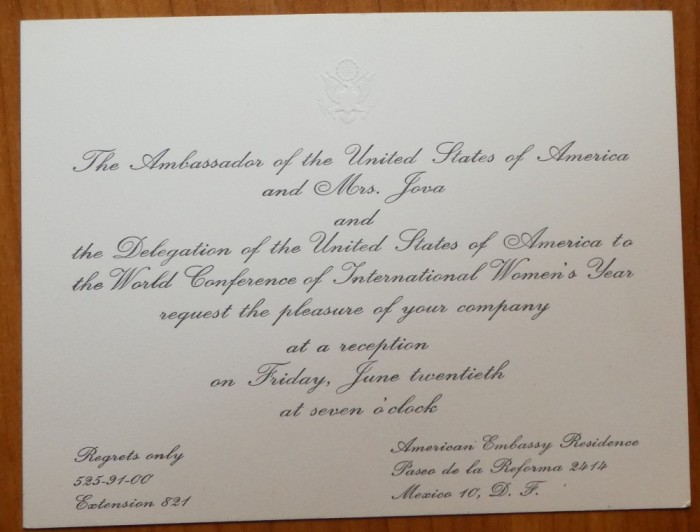 The Ambassador of the United States of America
and Mrs. Jova
and
the Delegation of the United States of America to
the World Conference of International Women's Year
request the pleasure of your company
at a reception
on Friday, June twentieth
at seven o'clock
Regrets only
525-91-00
Extension 821
American Embassy Residence
Paseo de la Reforma 2414
Mexico 10, D. F.